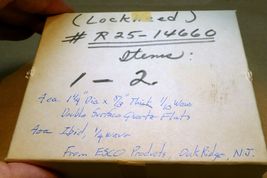 (Lockheed)
# R25-14660
Items:
1 - 2
4 ea 1 1/4" Dia x 3/8 Thick 1/10 Wave
Double Surface Quartz Flats
4 ea Ibid, 1/4 wave
From ESCO Products, Oak Ridge, N.J.